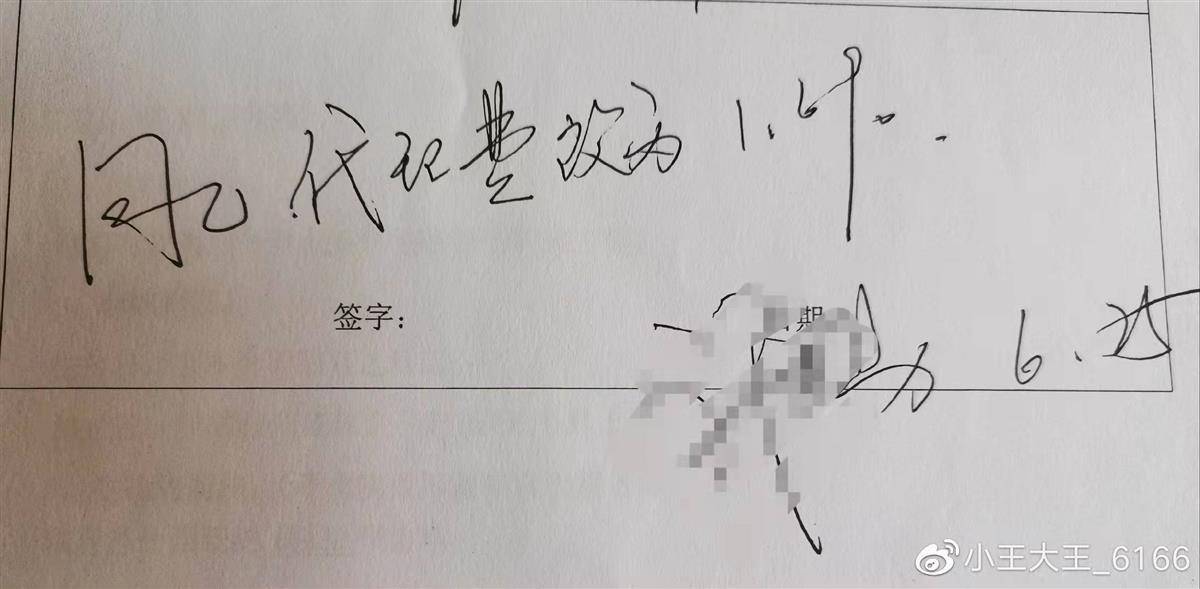 同意 代理费改为 1.6
签字：
期
6.25
小王大王_6166